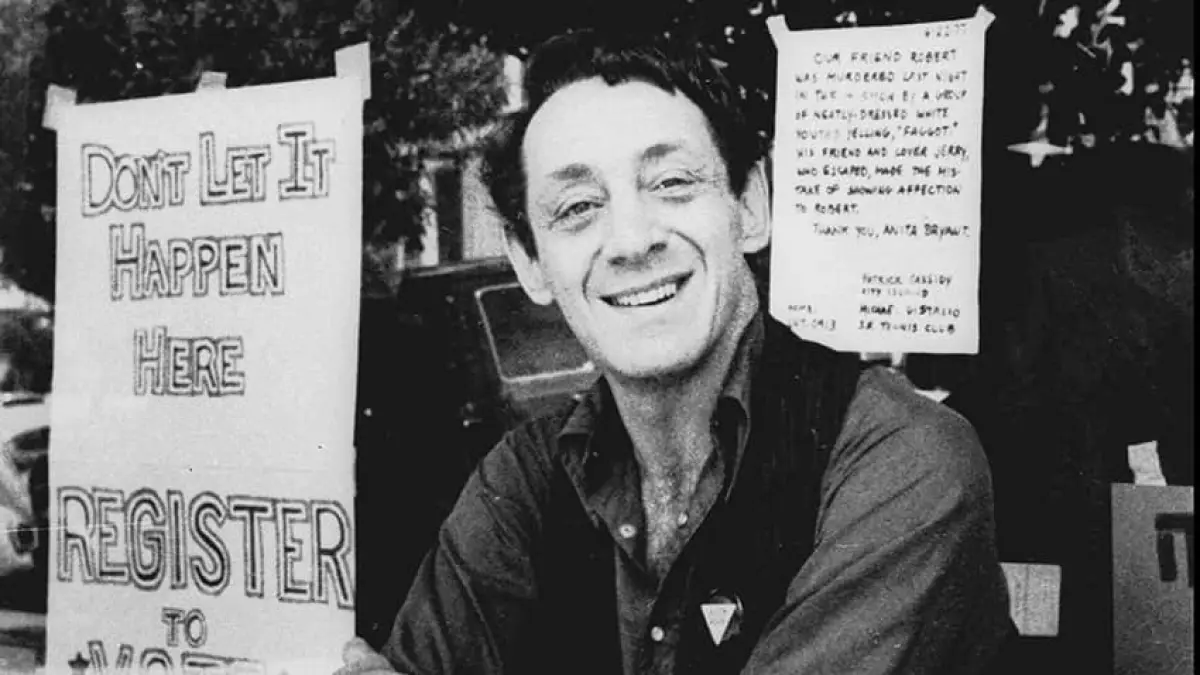 DON'T LET IT
HAPPEN
HERE
REGISTER
TO
VOTE
6/22/77
OUR FRIEND ROBERT
WAS MURDERED LAST NIGHT
IN THE BY A GROUP
OF NEATLY-DRESSED WHITE
YOUTHS YELLING, "FAGGOT."
HIS FRIEND AND LOVER JERRY,
WHO ESCAPED, MADE THE MIS-
TAKE OF SHOWING AFFECTION
TO ROBERT.
THANK YOU, ANITA BRYANT.
PATRICK CASSIDY
S.F. TENNIS CLUB